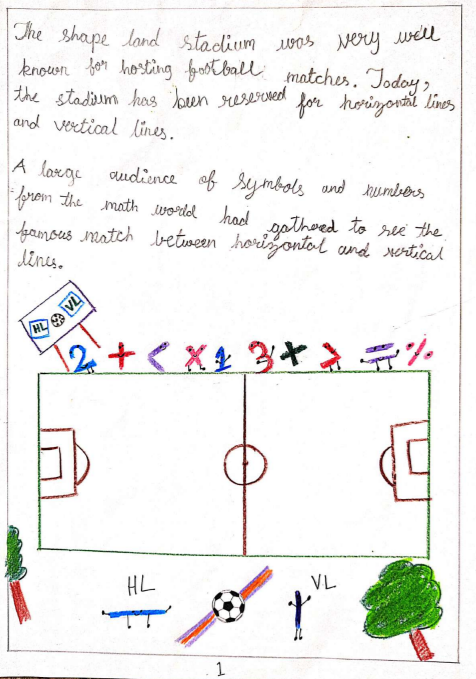 The shape land stadium was very well
known for hosting football matches. Today,
the stadium has been reserved for horizontal lines
and vertical lines.
A large audience of symbols and numbers
from the math world had gathered to see the
famous match between horizontal and vertical
lines.
HL VL
2 + < × 1 3 + > = %
HL VL
1